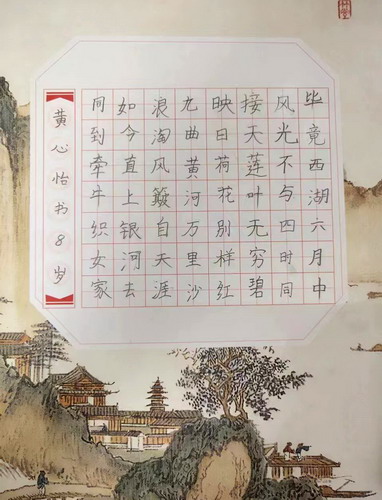 毕竟西湖六月中
风光不与四时同
接天莲叶无穷碧
映日荷花别样红
九曲黄河万里沙
浪淘风簸自天涯
如今直上银河去
同到牵牛织女家
黄心怡书8岁